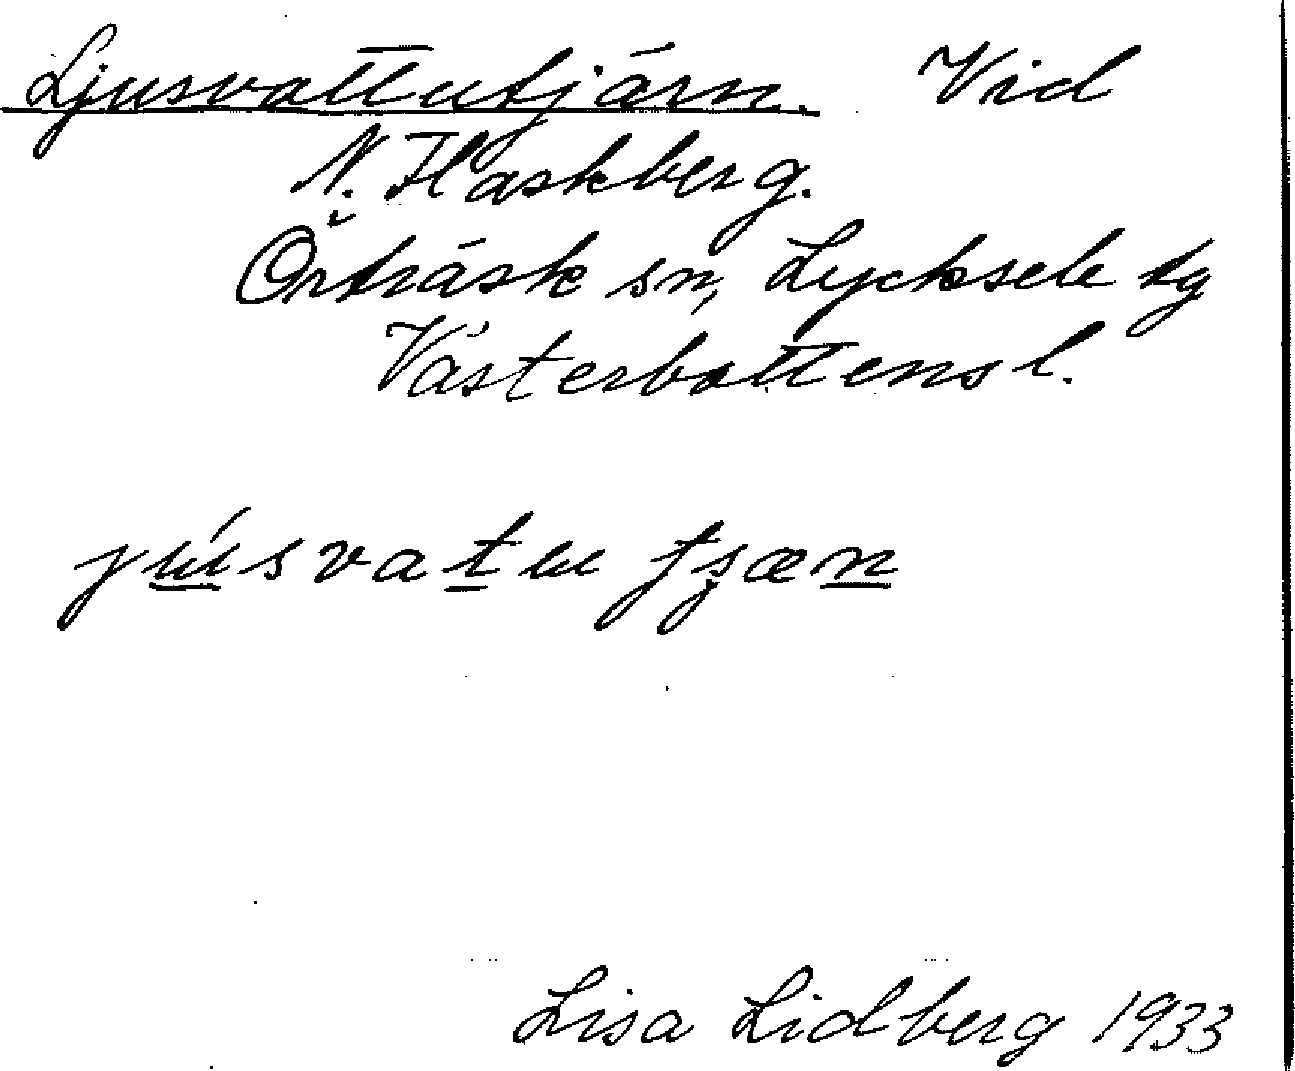 Ljusvattutjärn. Vid
N. Flaskberg.
Örträsk sn, Lycksele tg
Västerbottens l.
júsvatu tjæn
Lisa Lidberg 1933